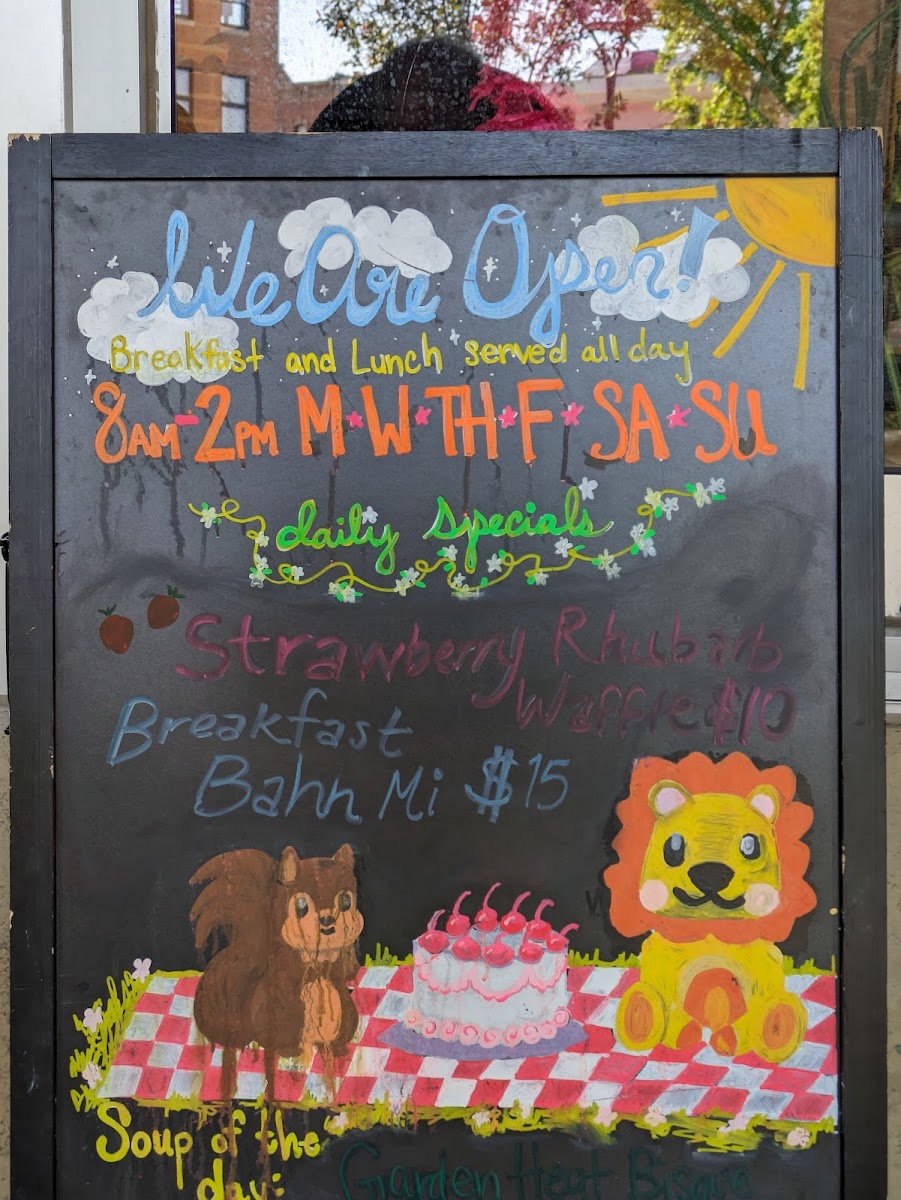 We Are Open!
Breakfast and Lunch served all day
8AM-2PM M*W*TH*F*SA*SU
daily Specials
Strawberry Rhubarb
Waffle $10
Breakfast
Bahn Mi $15
Soup of the
day:
Garden Heat Bisque